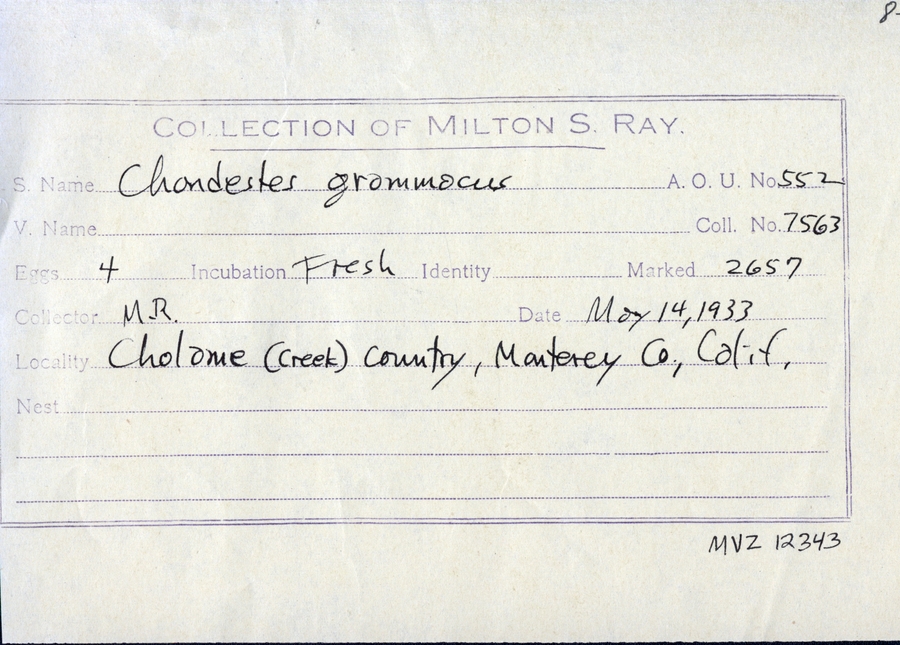 8-
COLLECTION OF MILTON S. RAY.
S. Name Chondestes grammacus A. O. U. No. 552
V. Name Coll. No. 7563
Eggs 4 Incubation Fresh Identity Marked 2657
Collector M.R. Date May 14, 1933
Locality Cholame (Creek) Country, Monterey Co., Calif.
Nest
MVZ 12343